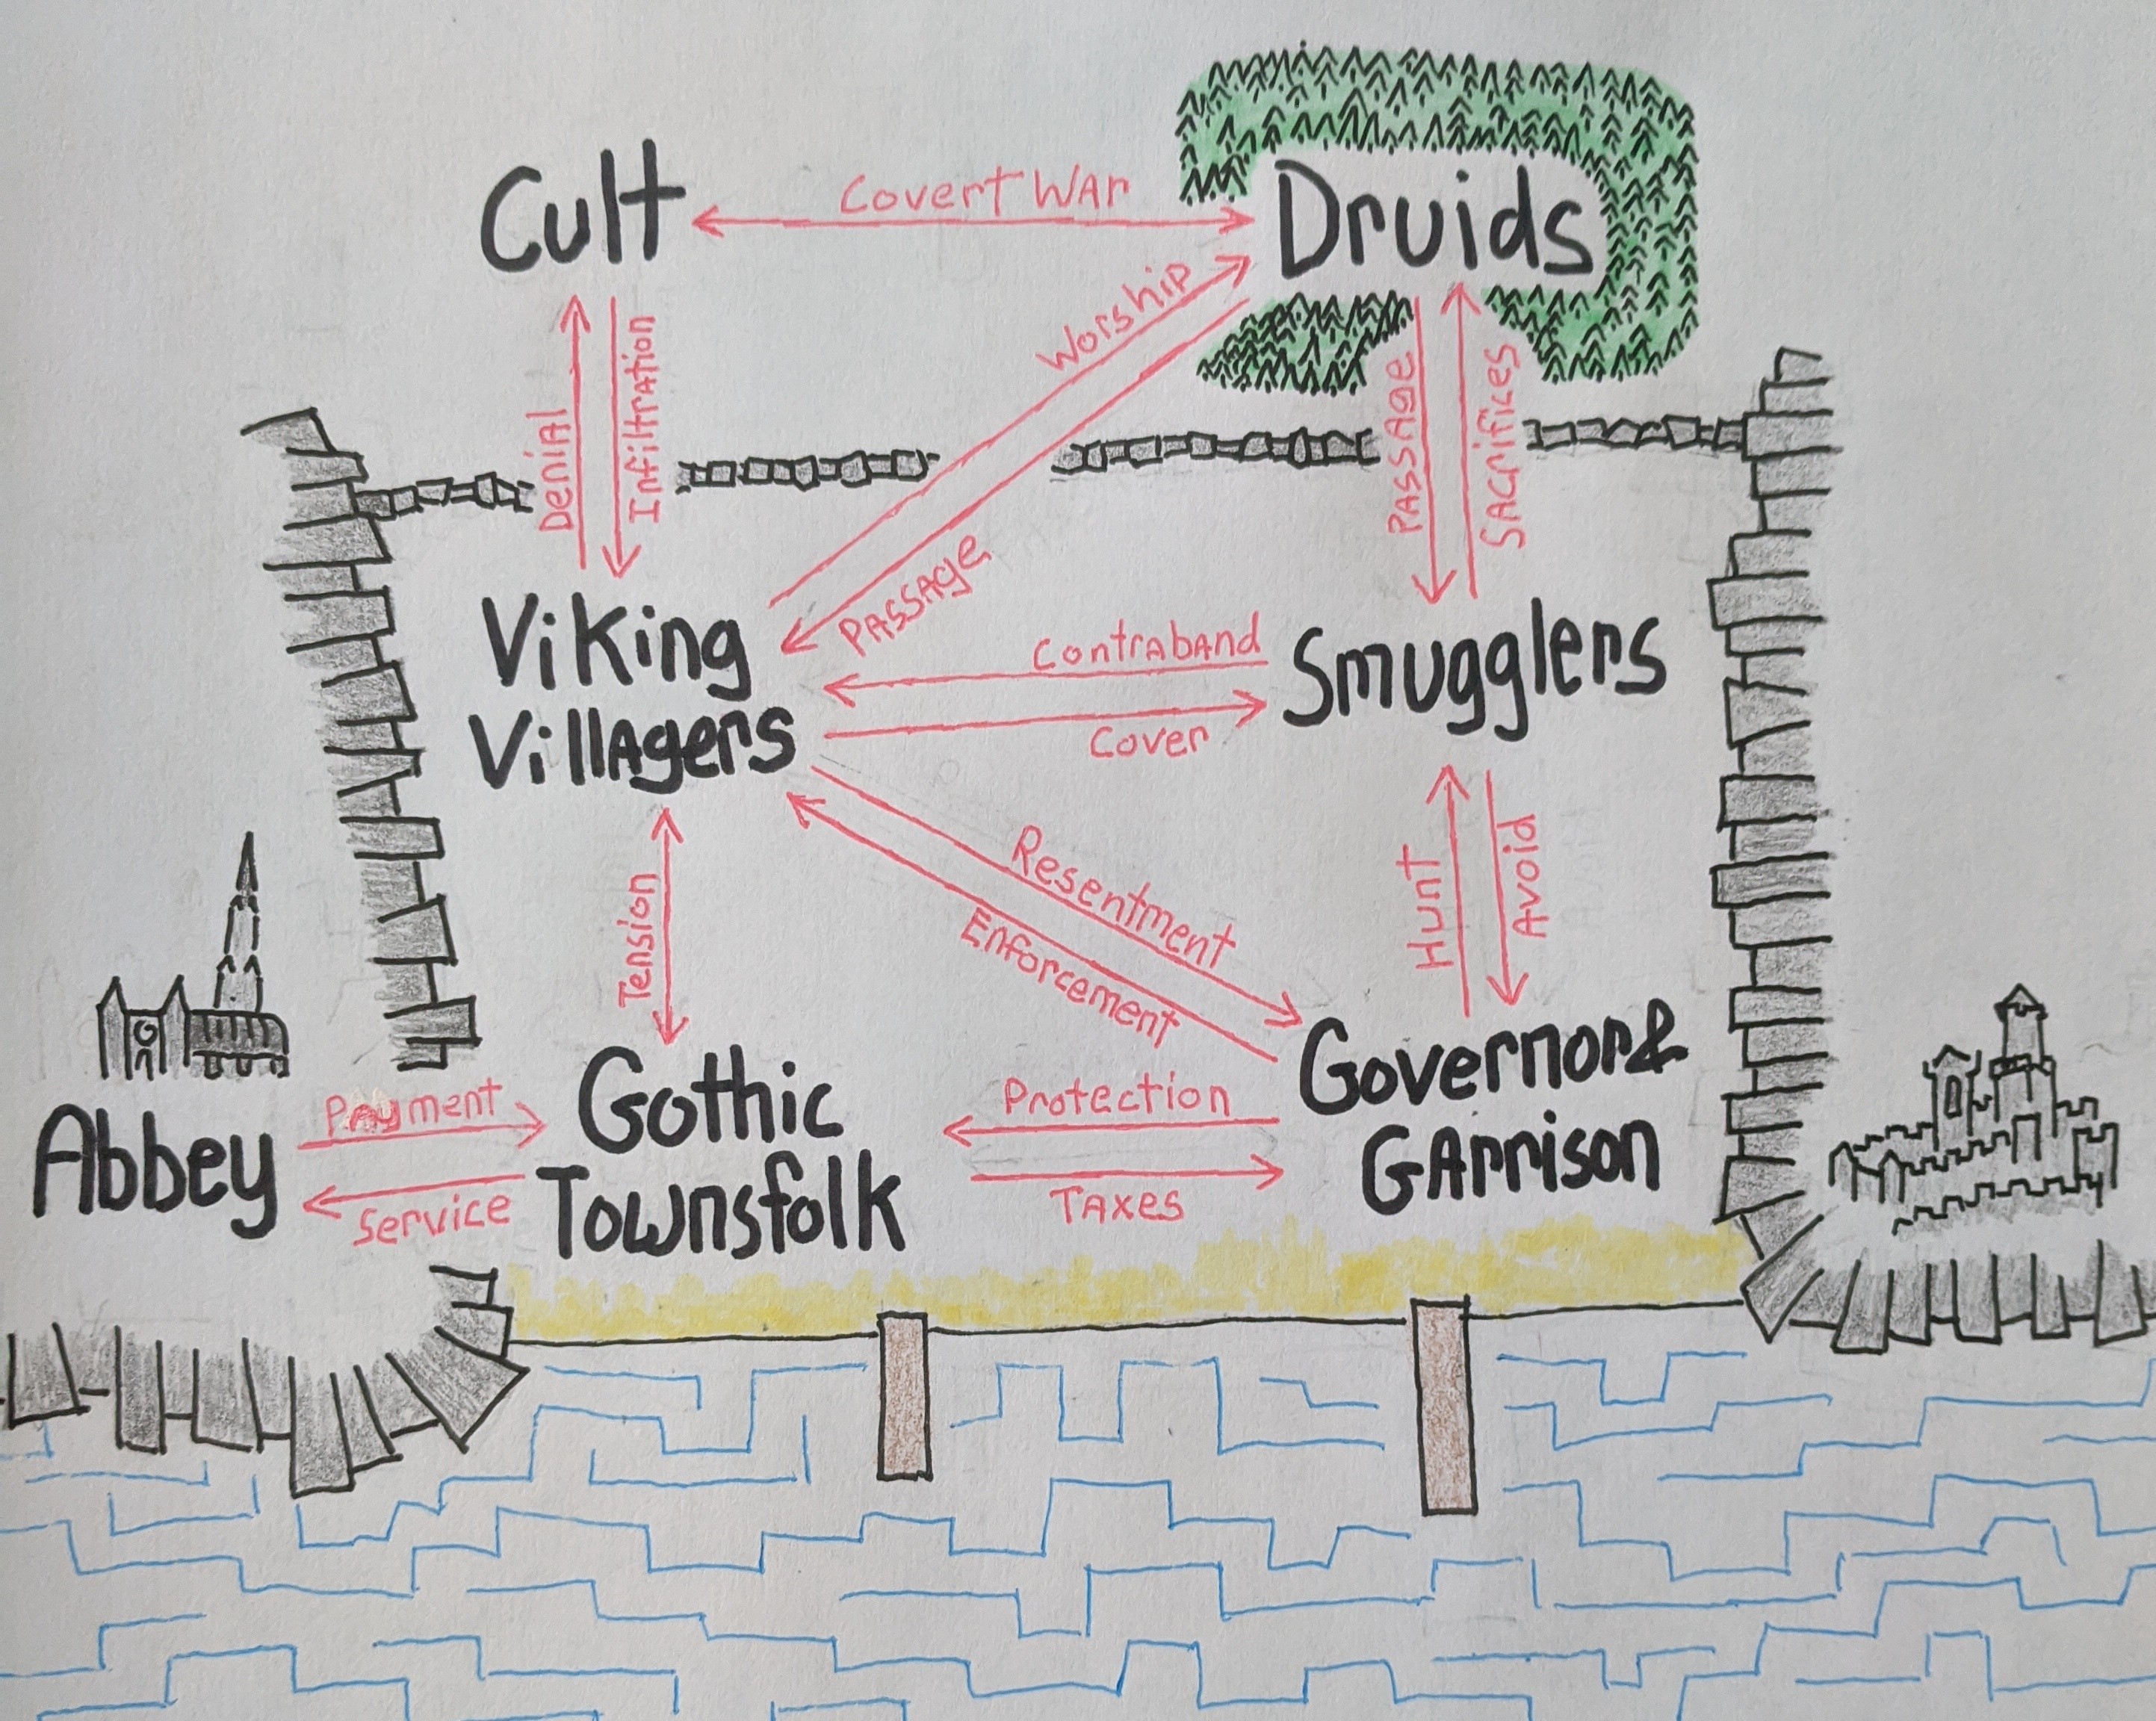 Cult
Covert War
Druids
Worship
Denial
Infiltration
Passage
Sacrifices
Passage
Viking
Villagers
Contraband
Cover
Smugglers
Resentment
Enforcement
Tension
Hunt
Avoid
Abbey
Payment
Service
Gothic
Townsfolk
Protection
Taxes
Governor &
Garrison